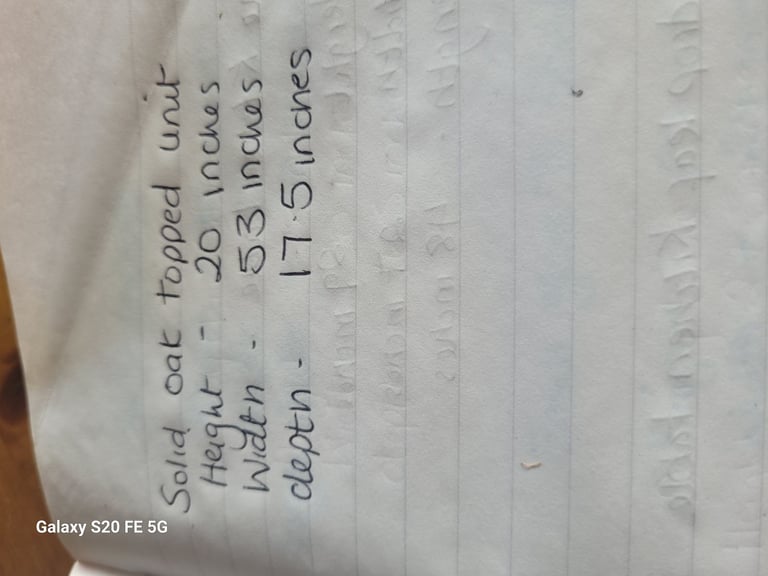 Solid oak topped unit
Height - 20 inches
Width - 53 inches
depth - 17.5 inches
Galaxy S20 FE 5G